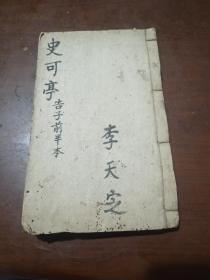 史可亭
告子前半本
李天定